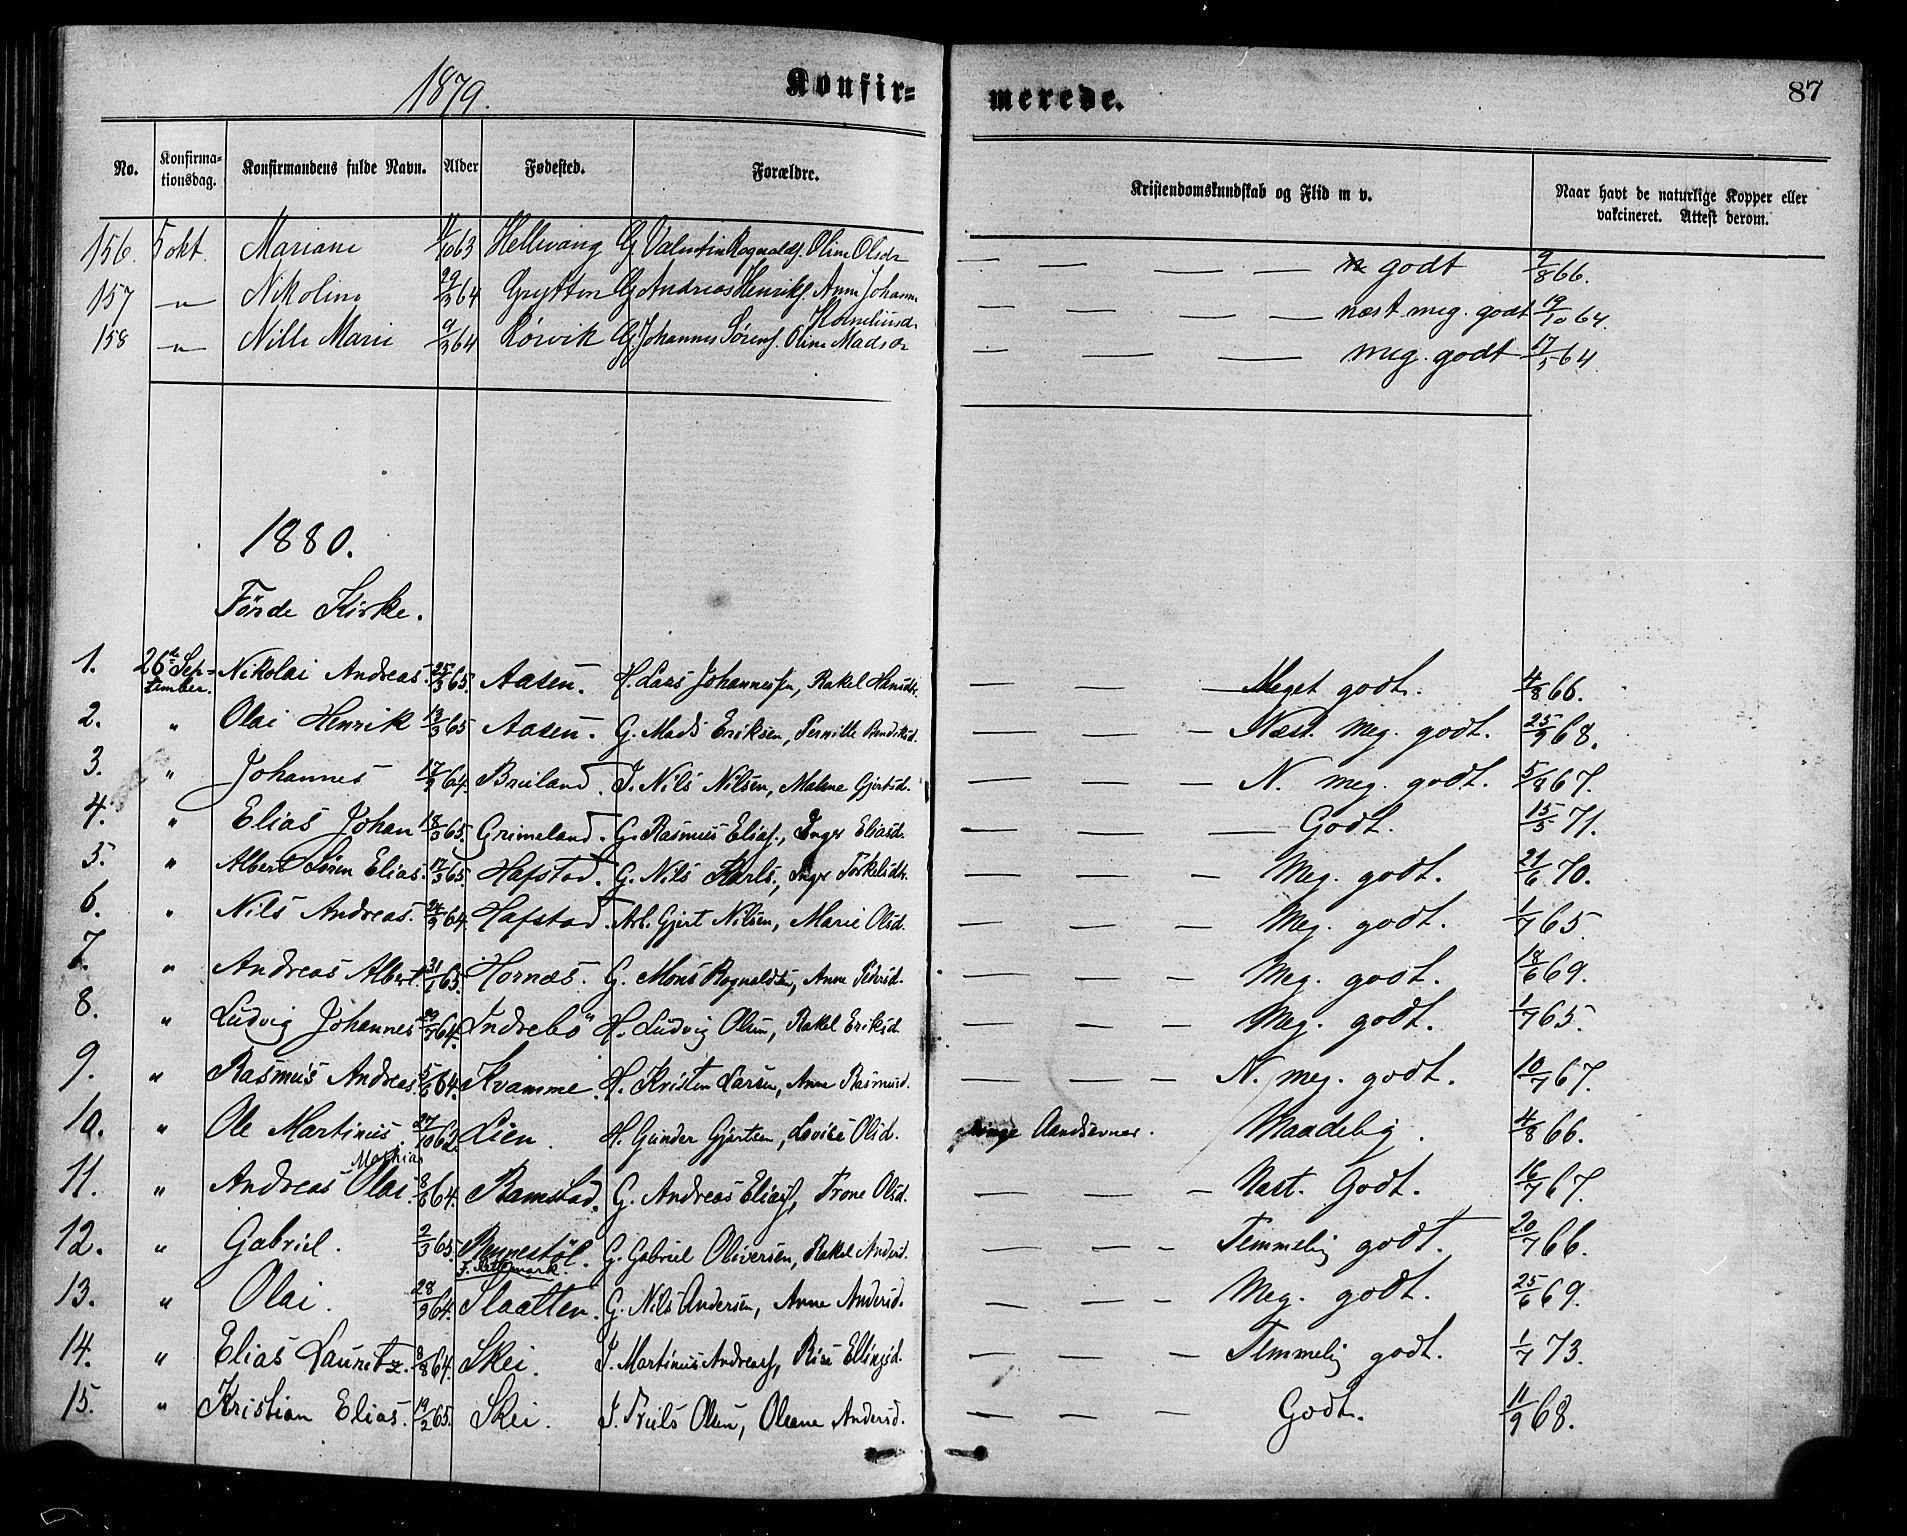 1879. Konfir= merede. 87
No. Konfirma-tionsdag. Konfirmandens fulde Navn. Alder Fødested. Forældre. Kristendomskundskab og Flid m v. Naar havt de naturlige Kopper eller vakcineret. Attest derom.
156. 5 okt. Mariane 11/10 63 Hellevang G. Valentin Rognaldss. Oline Olsdr — — — — godt 9/8 66.
157 — " — Nikoline 29/3 64 Grytten G Andreas Henriks. Anne Johanne Korneliusdr — — — — næst meg. godt 19/10 64.
158 — " — Nille Marie 9/3 64 Rørvik G. Johannes Sørens. Oline Madsdr — — — — meg. godt 17/5 64.
1880.
Förde Kirke.
1. 26de September. Nikolai Andreas. 25/3 65. Aasen. H. Lars Johannessen, Rakel Hansdr. — — — Meget godt. 4/8 66.
2. " Olai Henrik 13/3 65 Aasen. G. Mads Eriksen, Pernille Bendiksd. — — — Næst meg. godt. 25/9 68.
3. " Johannes 17/9 64. Bruland. I. Nils Nilsen, Malene Gjertsd. — — — N. meg. godt. 5/8 67.
4. " Elias Johan 18/3 65. Grimeland. G. Rasmus Elias., Inger Eliasd. — — — Godt. 15/5 71.
5. " Albert Sören Elias. 17/3 65. Hafstad. G. Nils Karls., Inger Torkelsdr. — — — Meg. godt. 21/6 70.
6. " Nils Andreas. 24/9 64. Hafstad. Arb. Gjert Nilsen, Marie Olsd. — — — Meg. godt. 1/7 65.
7. " Andreas Albert. 31/1 65. Hornæs. G. Mons Rognaldsen, Anne Pedersd. — — — Meg. godt. 18/6 69.
8. " Ludvig Johannes 29/7 64. Indrebö H. Ludvig Olsen, Rakel Eriksd. — — — Meg. godt. 1/7 65.
9. " Rasmus Andreas. 5/6 64. Kvamme. H. Kristen Larsen, Anne Rasmusd. — — — N. meg. godt. 10/7 67.
10. " Ole Martinus 27/10 62. Lien. H. Gunder Gjertsen, Lovise Olsd. ringe Aandsevner. Maadelig. 4/8 66.
11. " Andreas Olai Mathias 8/8 64. Ramstad. G. Andreas Eliass, Trone Olsd. — — — Næst. Godt. 16/7 67.
12. " Gabriel. 2/3 65. Rennestöl. G. Gabriel Oliversen, Rakel Andersd. — — — Temmelig godt. 20/7 66.
13. " Olai. 28/9 64. Slaatten. G. Nils Andersen, Anne Andersd. — — — Meg. godt. 25/6 69.
14. " Elias Lauretz. 8/8 64. Skei. I. Martinus Andreass, Rise Ellingsd. — — — Temmelig godt. 1/7 73.
15. " Kristian Elias. 19/2 65. Skei. I. Truls Olsen, Oleane Andersd. — — — Godt. 11/9 68.